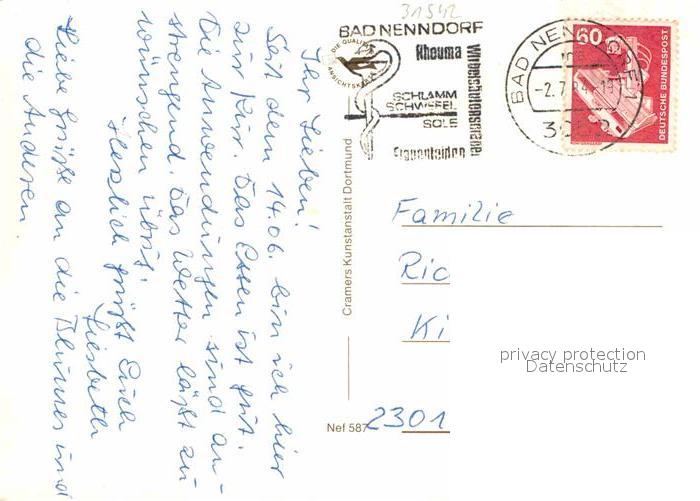 31542
BAD NENNDORF
Rheuma
Wirbelsäulenschäden
DIE QUALITÄTS
ANSICHTSKARTE
SCHLAMM
SCHWEFEL
SOLE
Frauenleiden
BAD NENNDORF 1
-2.7.84-19
3052
60
DEUTSCHE BUNDESPOST
Ihr Lieben!
Seit dem 14.06. bin ich hier
zur Kur. Das Essen ist gut.
Die Anwendungen sind an-
strengend. Das Wetter läßt zu
wünschen übrig.
Herzlich grüßt Euch
Liesbeth
Liebe Grüße an die Blumes und
die Anderen
Cramers Kunstanstalt Dortmund
Nef 587
Familie
Ric
Ki
2301
privacy protection
Datenschutz